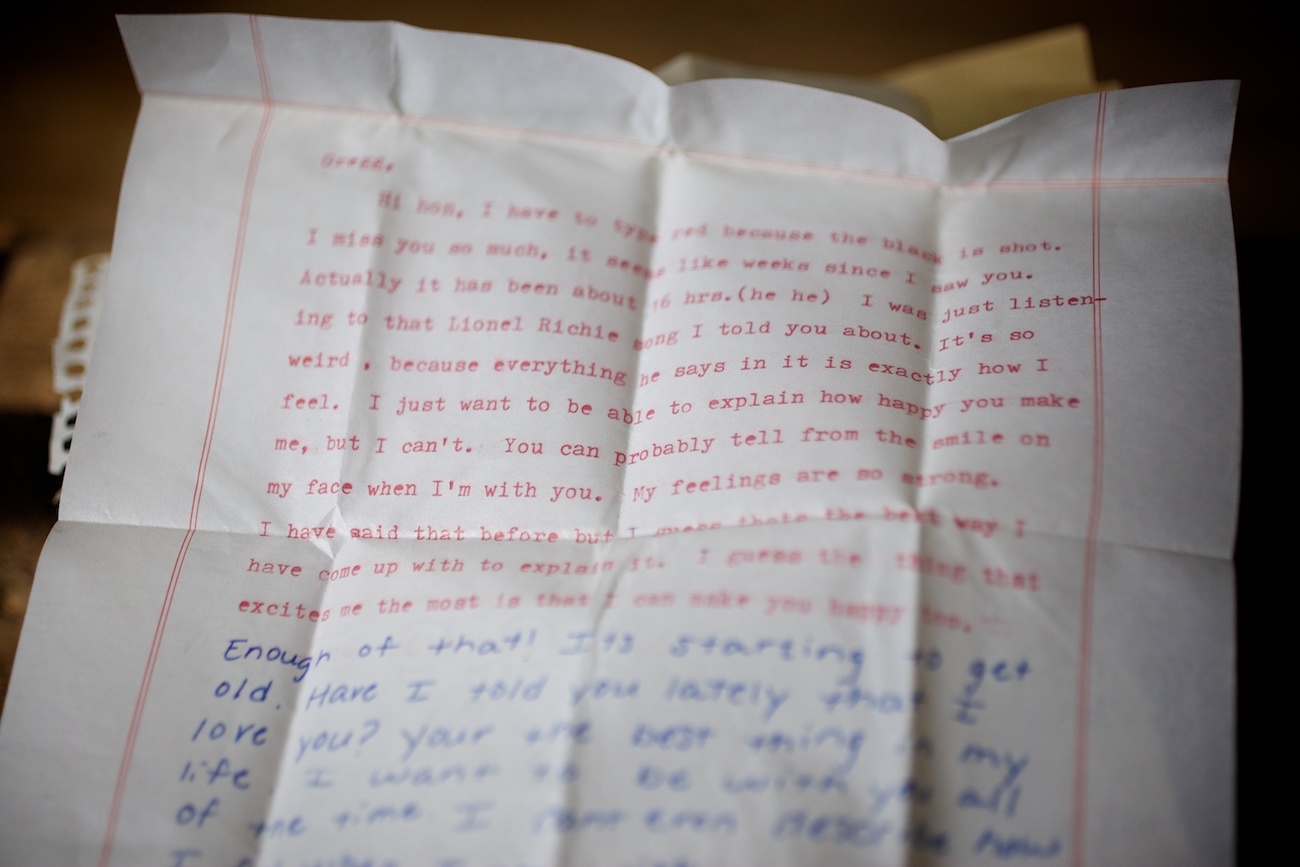 Hi hon, I have to type red because the black is shot.
I miss you so much, it seems like weeks since I saw you.
Actually it has been about 16 hrs.(he he) I was just listen-
ing to that Lionel Richie song I told you about. It's so
weird , because everything he says in it is exactly how I
feel. I just want to be able to explain how happy you make
me, but I can't. You can probably tell from the smile on
my face when I'm with you. My feelings are so strong.
I have said that before but I guess thats the best way I
have come up with to explain it. I guess the thing that
excites me the most is that I can make you happy too.
Enough of that! Its starting to get
old. Have I told you lately that I
love you? Your the best thing in my
life I want to be with you all
of the time I cant even describe how